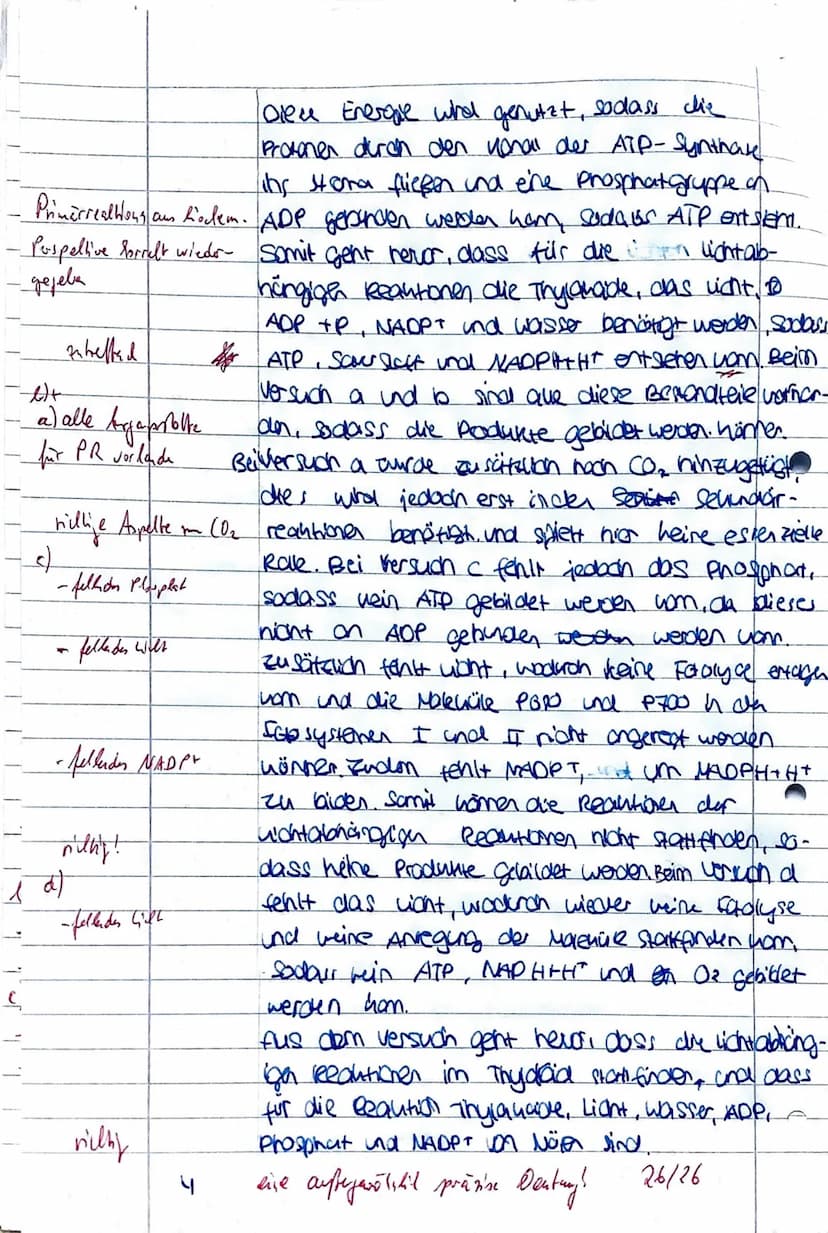 Diese Energie wird genutzt, sodass die
Protonen durch den Kanal der ATP-Synthase
ins Stroma fließen und eine Phosphatgruppe an
Primärreaktions aus
ADP gebunden werden kann, sodass ATP entsteht.
Perspektive korrekt wieder-
Somit geht hervor, dass für die lichtab-
gegeben
hängigen Reaktionen die Thylakoide, das Licht,
ADP +P, NADP+ und Wasser benötigt werden, sodass
zutreffend
ATP, Sauerstoff und NADPH+H+ entstehen kann. Beim
b)+
Versuch a und b sind alle diese Bestandteile vorhan-
a) alle Ausgangsstoffe
den, sodass die Produkte gebildet werden können.
für PR vorhanden
Bei Versuch a wurde zusätzlich noch CO2 hinzugefügt,
dies wird jedoch erst in den Sekundär-
richtige Aspekte zu CO2
reaktionen benötigt und spielt hier keine essenzielle
c)
Rolle. Bei Versuch c fehlt jedoch das Phosphat,
- fehlendes Phosphat
sodass kein ATP gebildet werden kann, da dieses
nicht an ADP gebunden werden kann.
- fehlendes Licht
Zusätzlich fehlt Licht, wodurch keine Fotolyse erfolgen
kann und die Moleküle P680 und P700 in den
Fotosystemen I und II nicht angeregt werden
- fehlendes NADP+
können. Zudem fehlt NADP+, um NADPH+H+
zu bilden. Somit können die Reaktionen der
lichtabhängigen Reaktionen nicht stattfinden, so-
richtig!
dass keine Produkte gebildet werden. Beim Versuch d
d)
fehlt das Licht, wodurch wieder keine Fotolyse
- fehlendes Licht
und keine Anregung der Moleküle stattfinden kann,
sodass kein ATP, NADPH+H+ und O2 gebildet
werden kann.
Aus dem Versuch geht hervor, dass die lichtabhäng-
igen Reaktionen im Thylakoid stattfinden, und dass
für die Reaktion Thylakoide, Licht, Wasser, ADP,
richtig
Phosphat und NADP+ von Nöten sind.
4
eine außergewöhnlich präzise Deutung! 26/26